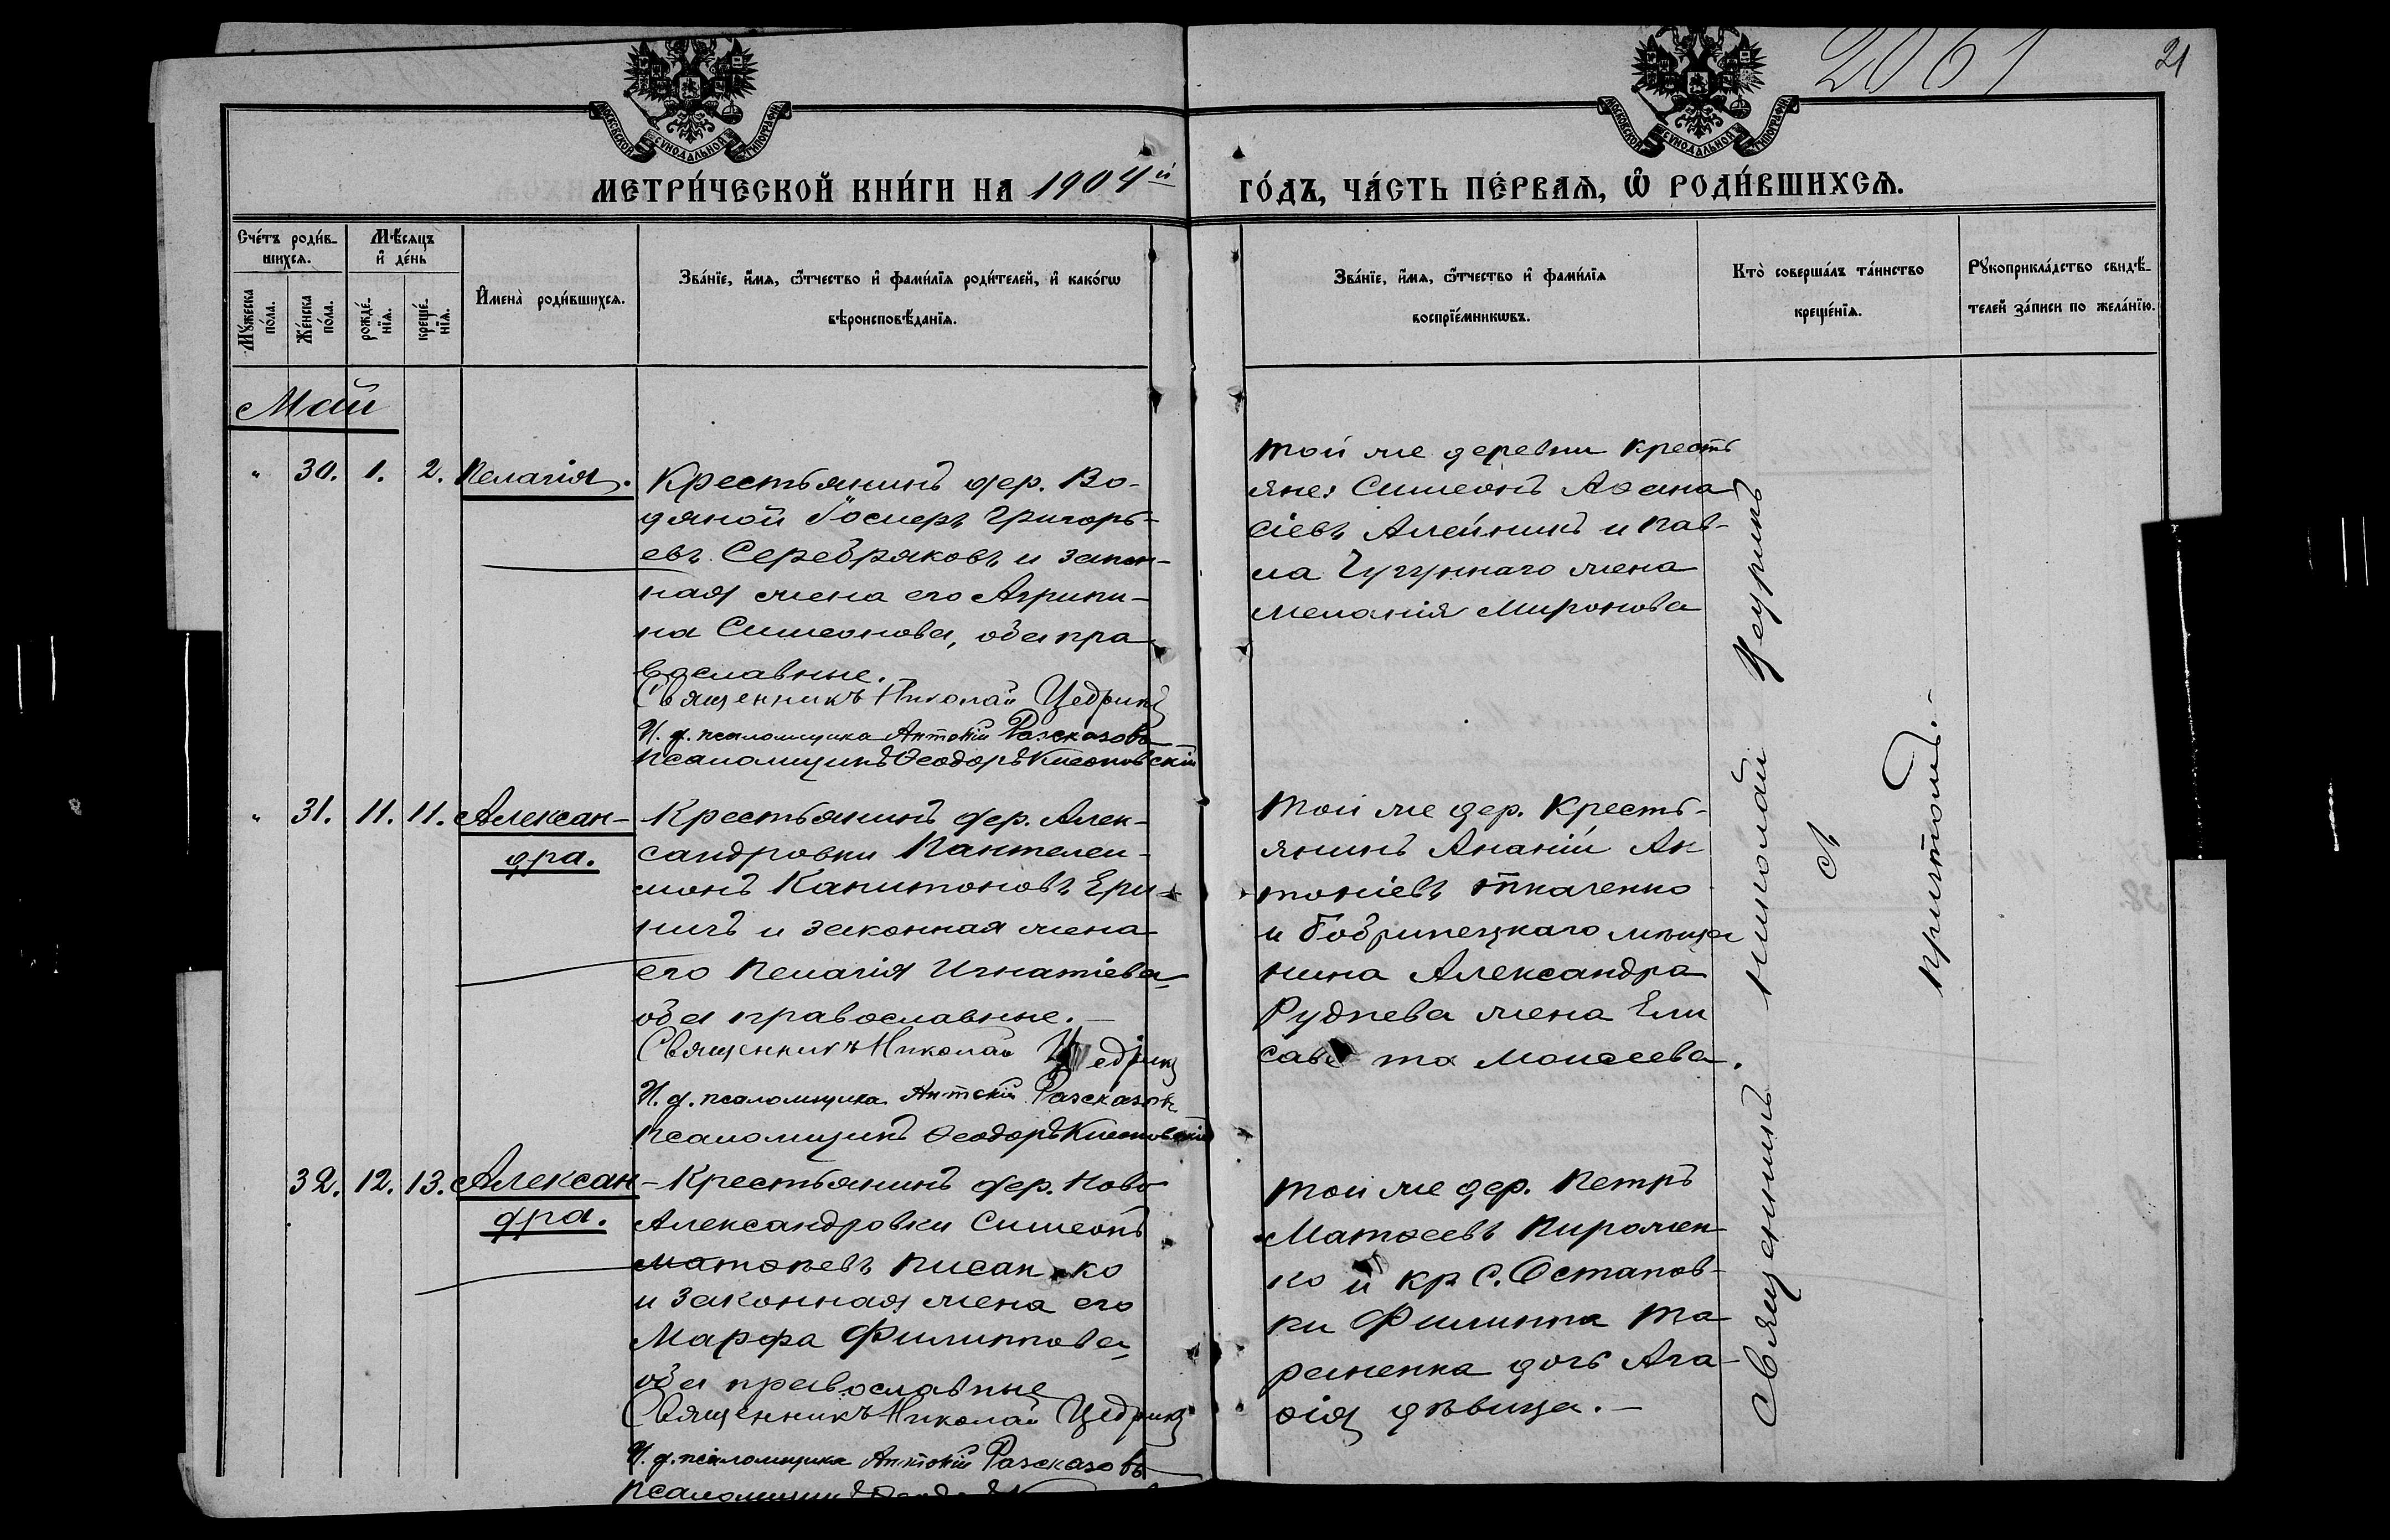 2061
21
МОСКОВСКОЙ СѴНОДАЛЬНОЙ ТИПОГРАФІИ
МОСКОВСКОЙ СѴНОДАЛЬНОЙ ТИПОГРАФІИ
МЕТРИ́ЧЕСКОЙ КНИ́ГИ НА 1904й
ГО́ДЪ, ЧА́СТЬ ПЕ́РВАѦ, Ѡ҆ РОДИ́ВШИХСѦ.
Сче́тъ роди́в-
шихсѧ.
Мѣ́сѧцъ
и҆ де́нь
Мꙋ́жеска
по́ла.
Же́нска
по́ла.
рожде́-
нїѧ.
креще́-
нїѧ.
И҆мена̀ роди́вшихсѧ.
Зва́нїе, и҆́мѧ, ѻ҆́тчество и҆ фами́лїѧ роди́телей, и҆ како́гѡ
вѣроисповѣ́данїѧ.
Зва́нїе, и҆́мѧ, ѻ҆́тчество и҆ фами́лїѧ
воспрїе́мникѡвъ.
Кто̀ соверша́лъ та́инство
креще́нїѧ.
Рꙋкоприкла́дство свидѣ́-
телей за́писи по жела́нїю.
Май
" 30. 1. 2. Пелагія.
Крестьянинъ дер. Во-
дяной Госиеръ Григорь-
евъ Серебряковъ и закон-
ная жена его Агрипи-
на Симеонова, оба пра
вославные.
Священникъ Николай Цедрикъ
И. д. псаломщика Антоній Разсказовъ
Псаломщикъ Ѳеодоръ
Той же деревни крестъ
яне: Симеонъ Аѳана
сіевъ Алейникъ и Пав-
ла Чугуннаго жена
Меланія Миронова
" 31. 11. 11. Алексан-
дра.
Крестьянинъ дер. Алек-
сандровки Пантелеи-
монъ Капитоновъ Ери-
ничъ и законная жена
его Пелагія Игнатіева
оба православные.
Священникъ Николай Цедрикъ
И. д. псаломщика Антоній Разсказовъ
Псаломщикъ Ѳеодоръ
Той же дер. кресть-
янинъ Ананій Ан
тоніевъ Ткаченко
и Бобринецкаго мѣща
нина Александра
Руднева жена Ели
саве та Моисеева.
32. 12. 13. Алексан-
дра.
Крестьянинъ дер. Ново
Александровки Симеонъ
Матѳеевъ Писан ко
и законная жена его
Марфа Филиппова
оба православные
Священникъ Николай Цедрикъ
И. д. псаломщика Антоній Разсказовъ
Псаломщикъ
Той же дер. Петръ
Матѳеевъ Пирожен-
ко и кр с. Остапов-
ки Филиппа Та
раненка дочь Ага-
ѳія дѣвица.
Священникъ Николай Цедрикъ
съ
причтомъ.